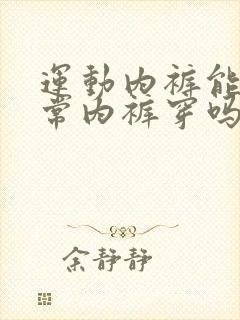 運動内裤能
常内裤穿吗
余静静